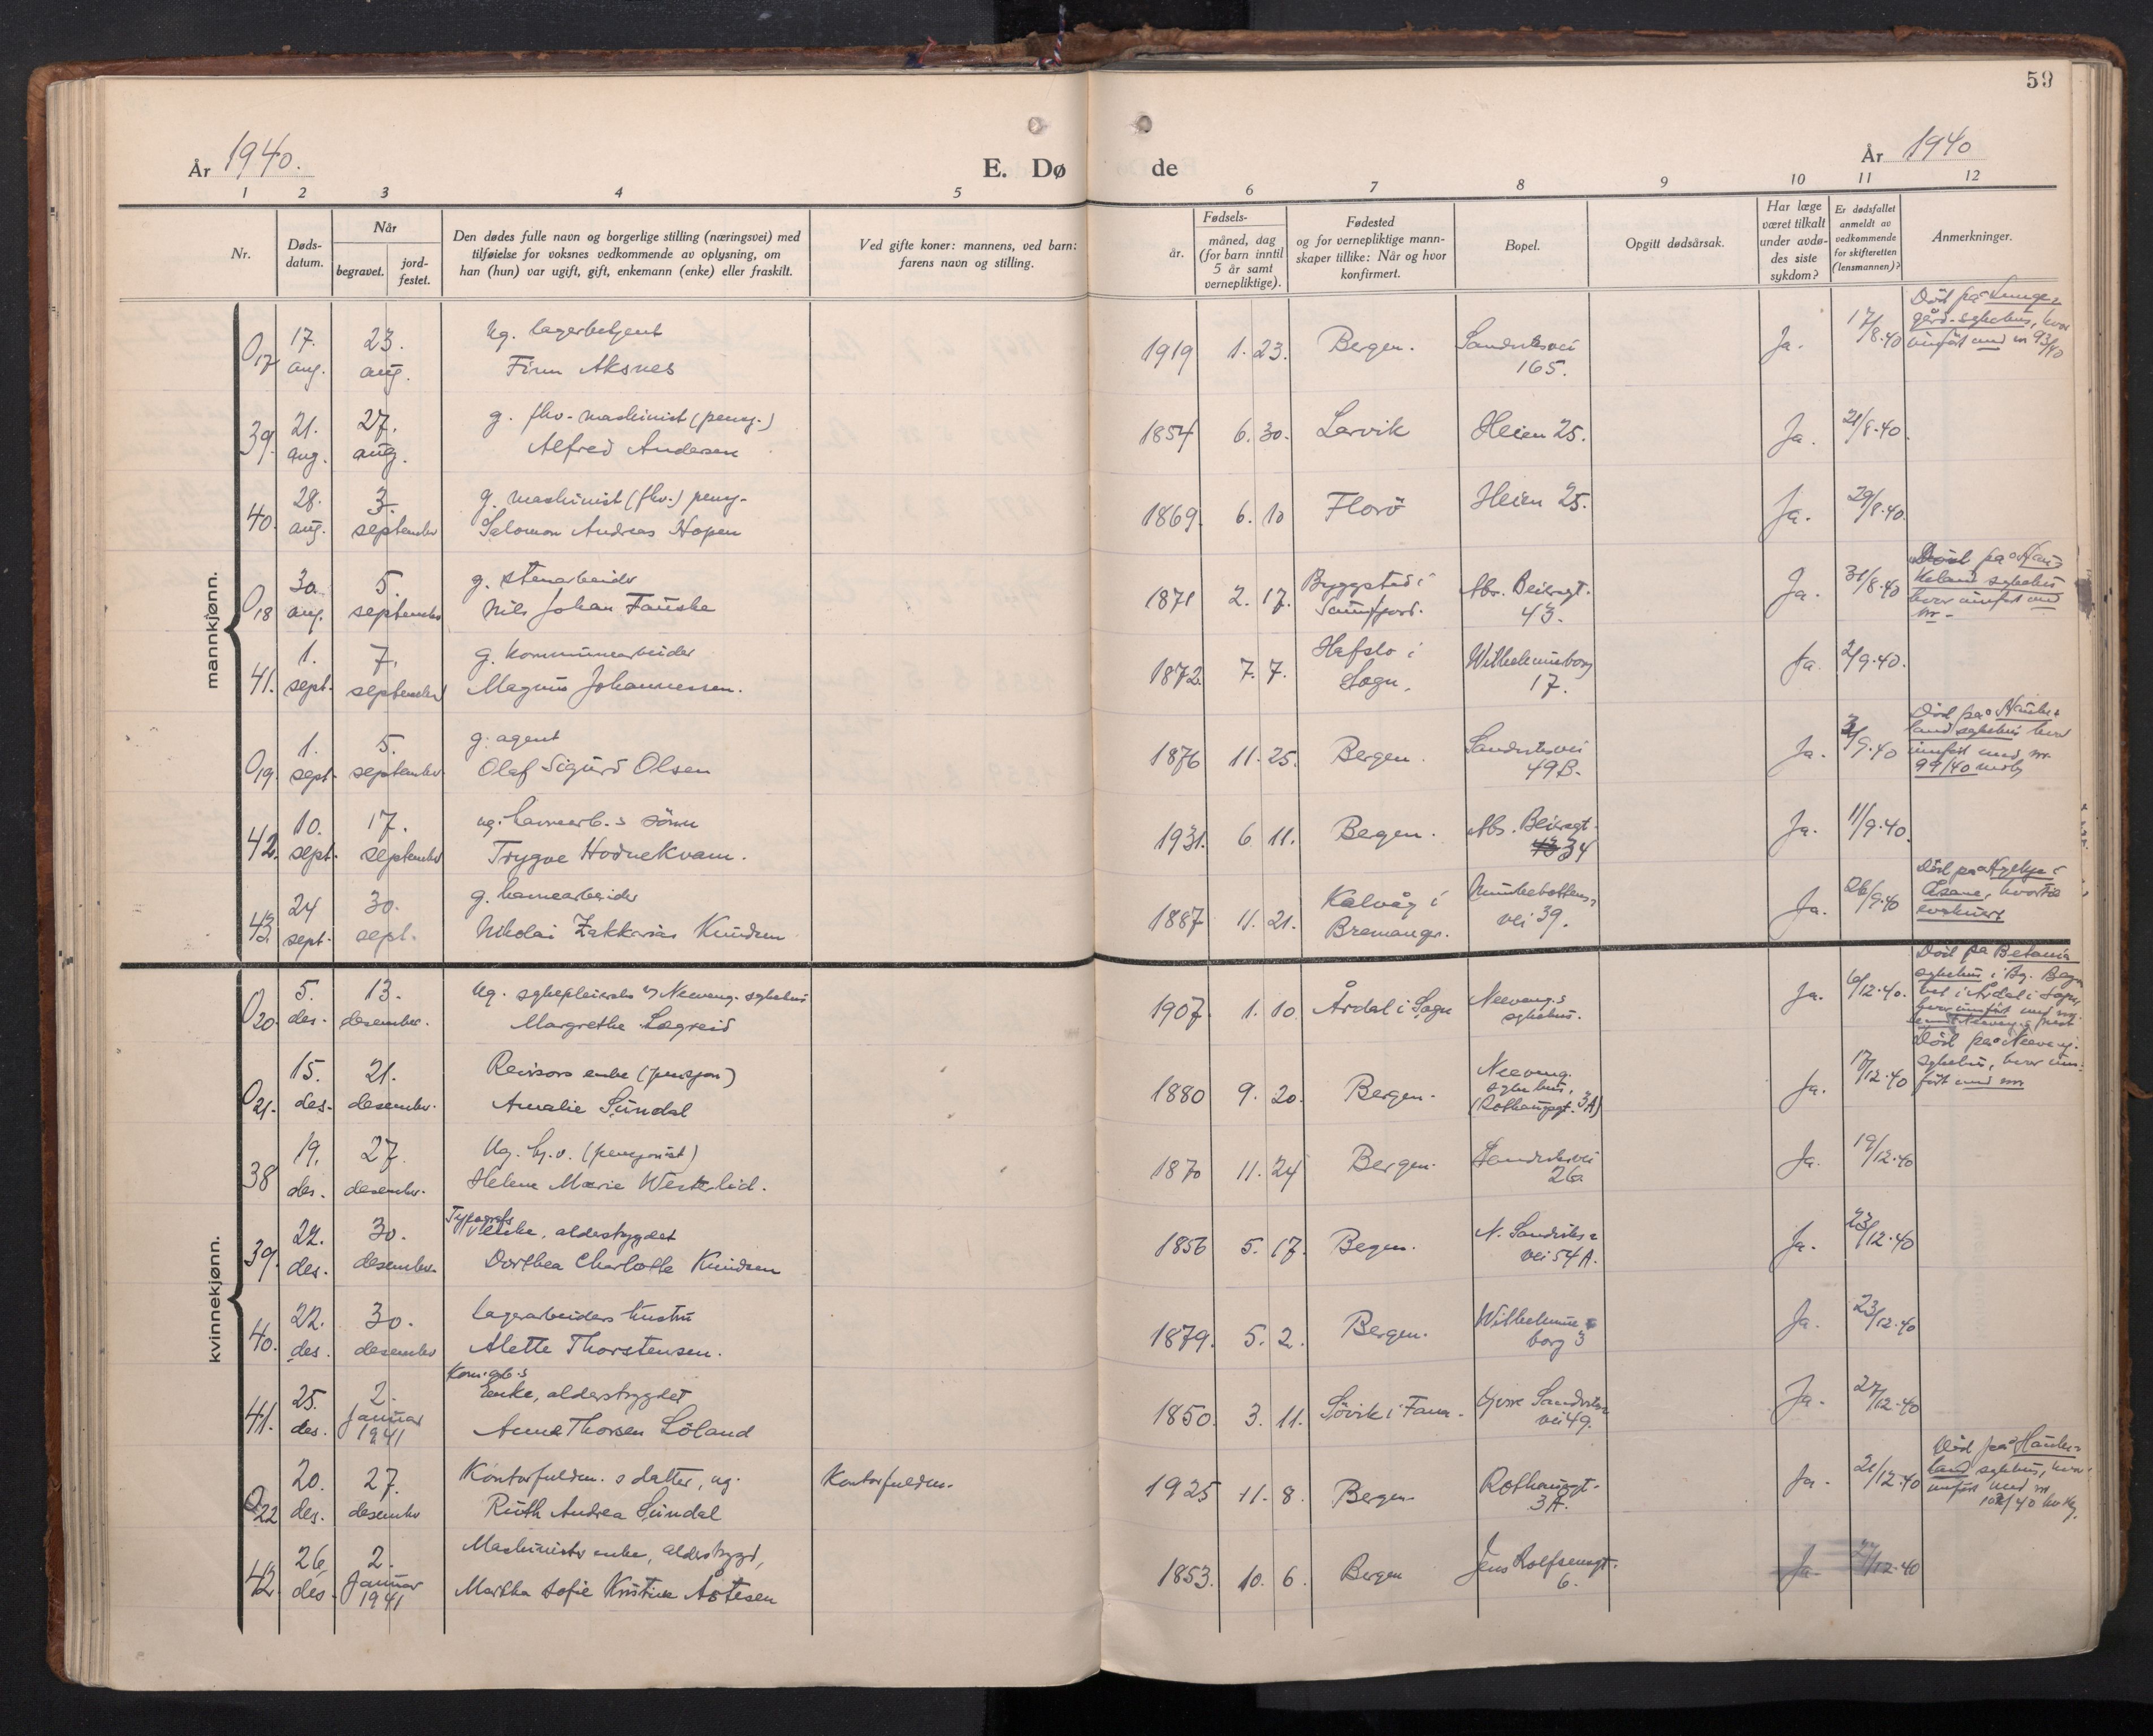 59
År 1940.
E. Dø
de
År 1940
1 2 3 4 5 6 7 8 9 10 11 12
Nr.
Døds-
datum.
Når
begravet.
jord-
festet.
Den dødes fulle navn og borgerlige stilling (næringsvei) med
tilføielse for voksnes vedkommende av oplysning, om
han (hun) var ugift, gift, enkemann (enke) eller fraskilt.
Ved gifte koner: mannens, ved barn:
farens navn og stilling.
Fødsels-
år.
måned, dag
(for barn inntil
5 år samt
vernepliktige).
Fødested
og for vernepliktige mann-
skaper tillike: Når og hvor
konfirmert.
Bopel.
Opgitt dødsårsak.
Har læge
været tilkalt
under avdø-
des siste
sykdom?
Er dødsfallet
anmeldt av
vedkommende
for skifteretten
(lensmannen)?
Anmerkninger.
mannkjønn.
O17 17. aug. 23. aug.
Ug. lagerbetjent
Finn Aksnes
1919 1. 23. Bergen. Sandviksvei
165.
Ja. 17/8.40
Död på Lunge-
gård-sykehus, hvor
innfört med nr 93/40
39. 21. aug. 27. aug.
g. fhv. maskinist (pensj.)
Alfred Andersen
1854 6. 30. Larvik Heien 25. Ja. 21/8.40.
40. 28. aug. 3. september
g. maskinist (fhv.) pensj.
Salomon Andreas Hopen
1869. 6. 10 Florö Heien 25. Ja. 29/8.40.
O18 30. aug. 5. september
g. stenarbeider
Nils Johan Fauske
1871 2. 17. Byggstad i
Sunnfjord.
Abs. Beiersgt.
43.
Ja. 31/8.40
Död på Hau-
keland sykehus
hvor innfört med
nr -
41. 1. sept. 7. september
g. kommunearbeider
Magnus Johannessen.
1872. 7. 7. Hafslo i
Sogn.
Wilhelminsborg
17.
Ja. 2/9.40.
O19. 1. sept. 5. september.
g. agent
Olaf Sigurd Olsen
1876 11. 25. Bergen. Sandviksvei
49B.
Ja. 3/9.40
Död på Hauke-
land sykehus hvor
innfört med nr.
99/40
42. 10. sept. 17. september
ug. havnearb.s sönn
Trygve Hodnekvam.
1931. 6 11. Bergen. Abs. Beiersgt.
34
Ja. 11/9.40.
43. 24 sept. 30. sept.
g. havnearbeider
Nikolai Zakkarias Knudsen
1887 11. 21. Kalvåg i
Bremanger.
Munkebotten-
vei 39.
Ja. 26/9.40
Död på Hylkje i
Åsane, hvortil
evakuert
kvinnekjønn.
O20. 5. des. 13. desember.
Ug. sykepleierske v/ Neeveng. sykehus
Margrethe Lægreid
1907 1. 10. Årdal i Sogn Neeveng.s
sykehus.
Ja. 6/12.40.
Död på Betania
sykehus i Bg. Begra-
vet i Årdal i Sogn,
hvor innfört med nr.
O21. 15. des. 21. desember.
Revisors enke (pensjon)
Amalie Sundal
1880 9. 20. Bergen. Neeveng.
sykehus,
(Rothaugsgt. 3A)
Ja. 17/12.40
Död på Neeveng.
sykehus, hvor inn-
fört med nr
38 19. des. 27. desember.
Ug. hj.v. (pensjonist)
Helene Marie Westerlid.
1870 11. 24 Bergen. Sandviksvei
26
Ja. 19/12.40
39. 22. des. 30. desember.
Typografs
enke, alderstrygdet
Dorthea Charlotte Knudsen
1856 5. 17. Bergen. N. Sandviks-
vei 54 A.
Ja. 23/12.40
40. 22. des. 30. desember
Lagerarbeiders hustru
Alette Thorstensen.
1879. 5. 2. Bergen. Wilhelmine-
borg 3
Ja. 23/12.40
41. 25. des. 2. Januar 1941
Kom.arb.s
Enke, alderstrygdet
Anna Thorsen Löland
1850. 3. 11. Sövik i Fana. Övre Sandviks-
vei 49.
Ja. 27/12.40
O22 20. des. 27. desember
Kontorfuldm.s datter, ug.
Ruth Andrea Sundal
Kontorfuldm.
1925 11. 8. Bergen. Rothaugsgt.
3A.
Ja. 21/12.40
Död på Hauke-
land sykehus, hvor
innfört med nr
42. 26 des. 2. Januar 1941
Maskinists enke, alderstrygd,
Martha Sofie Kristine Astesen
1853. 10. 6. Bergen Jens Rolfsensgt.
6.
Ja. 27/12.40